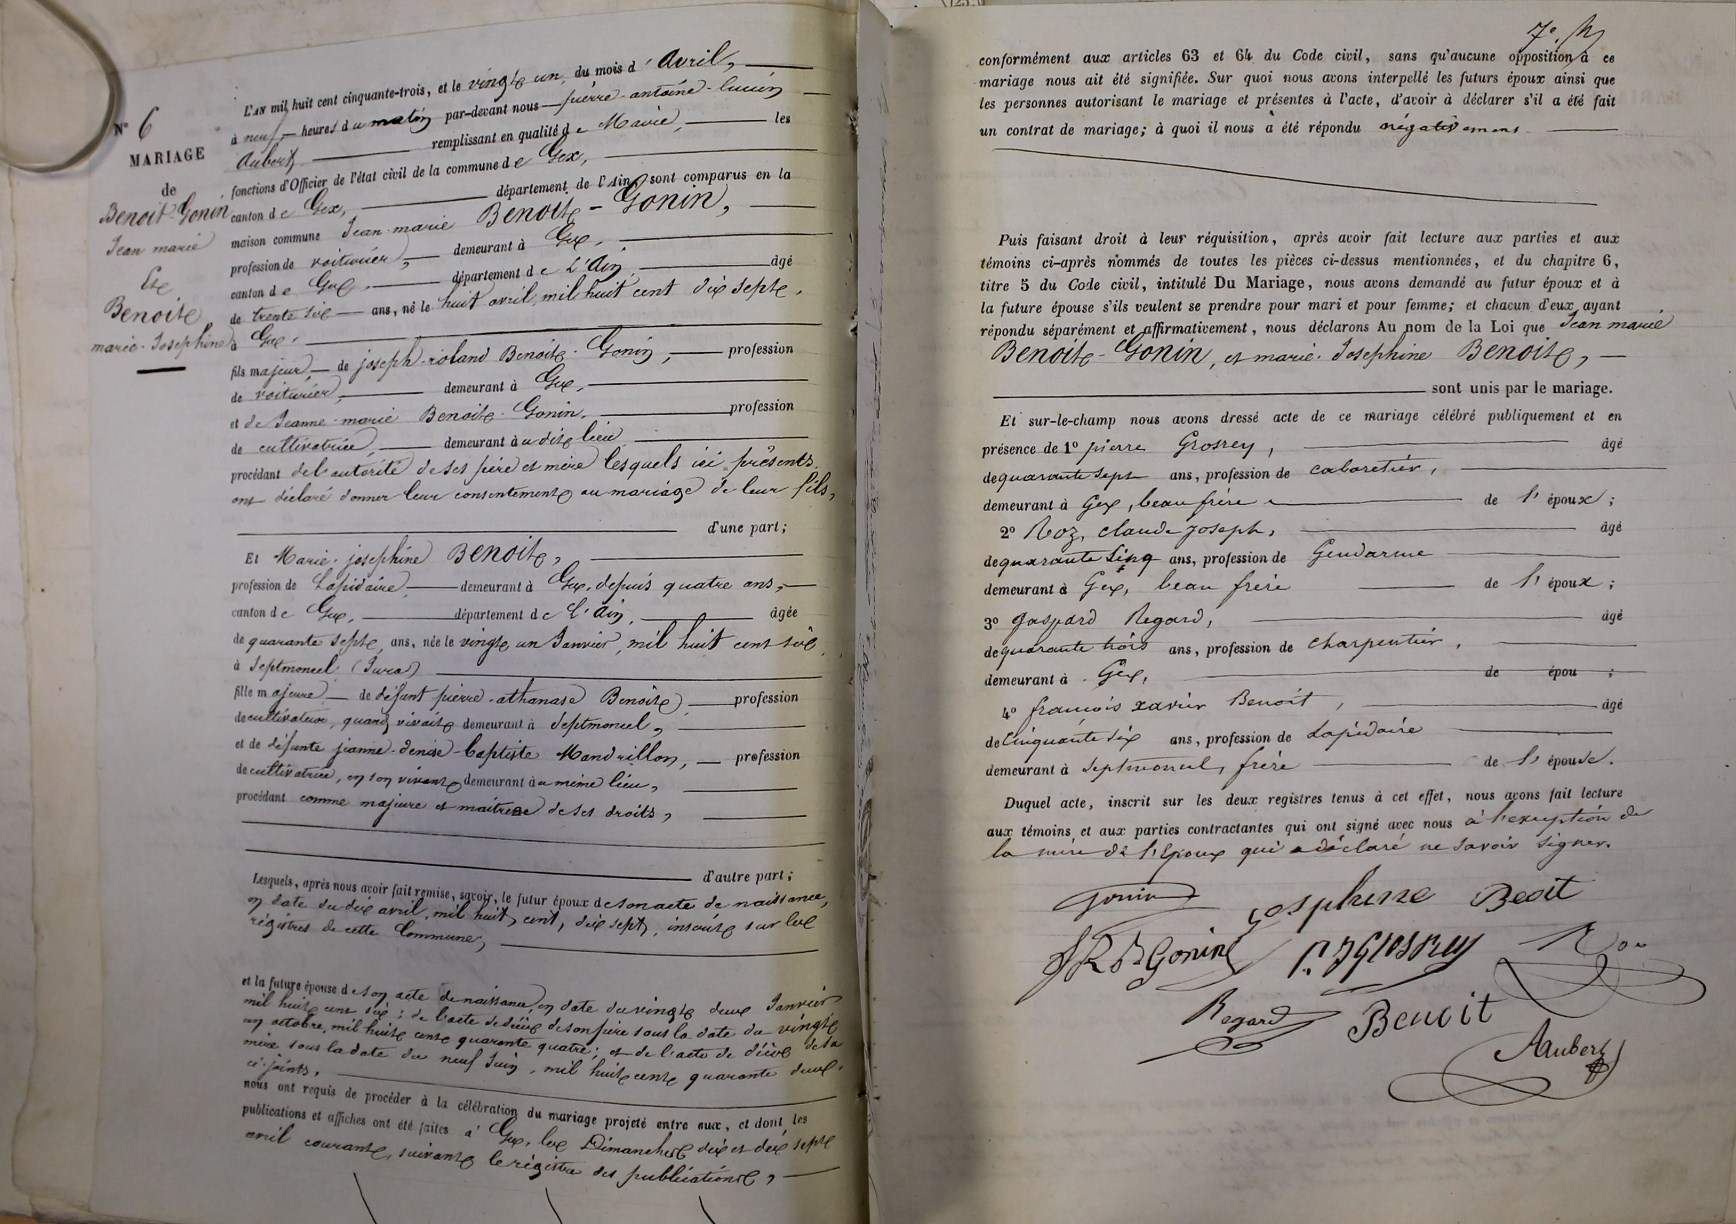 N° 6
MARIAGE
de
Benoit-Gonin
Jean marie
Et
Benoit
marie-Josephine
L'AN mil huit cent cinquante-trois, et le vingt un du mois d'avril,
à neuf heures du matin par-devant nous pierre-antoine-lucien
Aubert remplissant en qualité de Maire, les
fonctions d'Officier de l'état civil de la commune de Gex,
canton de Gex, département de l'Ain, sont comparus en la
maison commune Jean marie Benoit-Gonin,
profession de voiturier, demeurant à Gex,
canton de Gex, département de L'Ain, âgé
de trente six ans, né le huit avril, mil huit cent dix sept,
à Gex,
fils majeur, de joseph-roland Benoit-Gonin, profession
de voiturier, demeurant à Gex,
et de Jeanne-marie Benoit-Gonin, profession
de cultivatrice, demeurant au dit lieu
procédant de l'autorité de ses père et mère lesquels ici présents
ont déclaré donner leur consentement au mariage de leur fils,
d'une part;
Et Marie-josephine Benoit,
profession de Lapidaire demeurant à Gex, depuis quatre ans,
canton de Gex, département de L'Ain, âgée
de quarante sept, ans, née le vingt un Janvier, mil huit cent six,
à Septmoncel (Jura)
fille majeure de défunt pierre-athanase Benoit, profession
de cultivateur, quand vivait demeurant à Septmoncel,
et de défunte jeanne-denise-baptiste Mandrillon, profession
de cultivatrice, en son vivant demeurant au même lieu,
procédant comme majeure et maitresse de ses droits,
d'autre part;
Lesquels, après nous avoir fait remise, savoir, le futur époux de son acte de naissance,
en date du dix avril, mil huit, cent, dix sept, inscrit sur les
régistres de cette Commune,
et la future épouse de son acte de naissance, en date du vingt deux Janvier
mil huit cent six; de l'acte de décès de son père sous la date du vingt
un octobre, mil huit cent quarante quatre; et de l'acte de décès de sa
mère sous la date du neuf Juin, mil huit cent quarante deux,
ci-joints,
nous ont requis de procéder à la célébration du mariage projeté entre eux, et dont les
publications et affiches ont été faites à Gex, les Dimanches dix et dix sept
avril courant, suivant le régistre des publications,
conformément aux articles 63 et 64 du Code civil, sans qu'aucune opposition à ce
mariage nous ait été signifiée. Sur quoi nous avons interpellé les futurs époux ainsi que
les personnes autorisant le mariage et présentes à l'acte, d'avoir à déclarer s'il a été fait
un contrat de mariage; à quoi il nous a été répondu négativement
Puis faisant droit à leur réquisition, après avoir fait lecture aux parties et aux
témoins ci-après nommés de toutes les pièces ci-dessus mentionnées, et du chapitre 6,
titre 5 du Code civil, intitulé Du Mariage, nous avons demandé au futur époux et à
la future épouse s'ils veulent se prendre pour mari et pour femme; et chacun d'eux ayant
répondu séparément et affirmativement, nous déclarons Au nom de la Loi que Jean marie
Benoit-Gonin, et marie-Josephine Benoit,
sont unis par le mariage.
Et sur-le-champ nous avons dressé acte de ce mariage célébré publiquement et en
présence de 1° pierre Grosrey, âgé
de quarante sept ans, profession de cabaretier,
demeurant à Gex, beau frère de l'époux;
2° Roz, claude joseph, âgé
de quarante cinq ans, profession de Gendarme
demeurant à Gex, beau frère de l'époux;
3° gaspard Regard, âgé
de quarante trois ans, profession de charpentier,
demeurant à Gex, de épou ;
4° francois xavier Benoit, âgé
de Cinquante six ans, profession de Lapidaire
demeurant à Septmoncel, frère de l'épouse.
Duquel acte, inscrit sur les deux registres tenus à cet effet, nous avons fait lecture
aux témoins et aux parties contractantes qui ont signé avec nous à l'exception de
la mère de l'époux qui a déclaré ne savoir signer.
Gonin
Josphine Beoit
J R B Gonin
P. J Grosrey
Roz
Regard
Benoit
Aubert